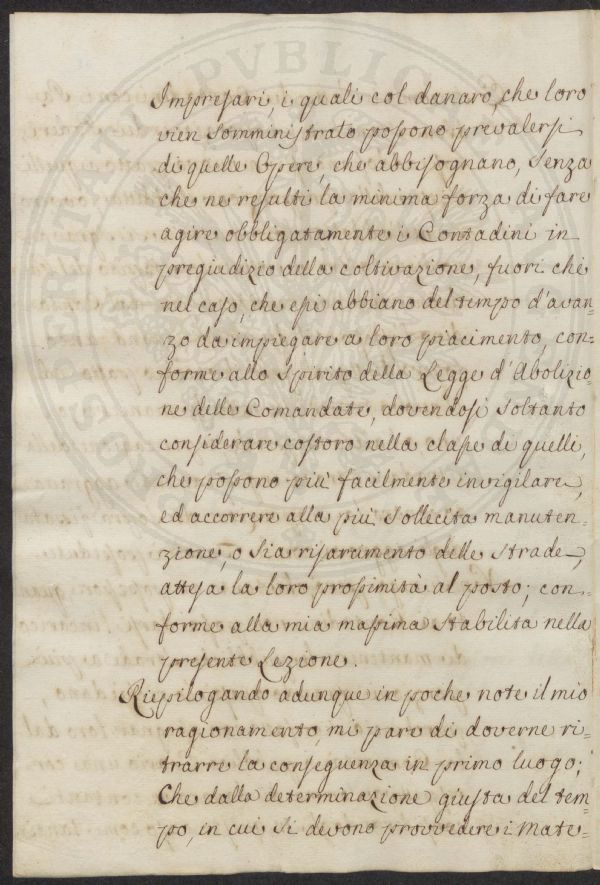 Impresari, i quali col danaro, che loro
vien somministrato possono prevalersi
di quelle Opere, che abbisognano, senza
che ne resulti la minima forza di fare
agire obbligatamente i Contadini in
pregiudizio della coltivazione, fuori che
nel caso, che essi abbiano del tempo d'avan=
zo da impiegare a loro piacimento, con=
forme allo spirito della Legge d'Abolizio=
ne delle Comandate, dovendosi soltanto
considerare costoro nella classe di quelli,
che possono più facilmente invigilare,
ed accorrere alla più sollecita manuten=
zione, o sia risarcimento delle strade,
attesa la loro prossimità al posto; con=
forme alla mia massima stabilita nella
presente Lezione.
Riepilogando adunque in poche note il mio
ragionamento, mi pare di doverne ri=
trarre la conseguenza in primo luogo;
Che dalla determinazione giusta del tem=
po, in cui si devono provvedere i Mate=